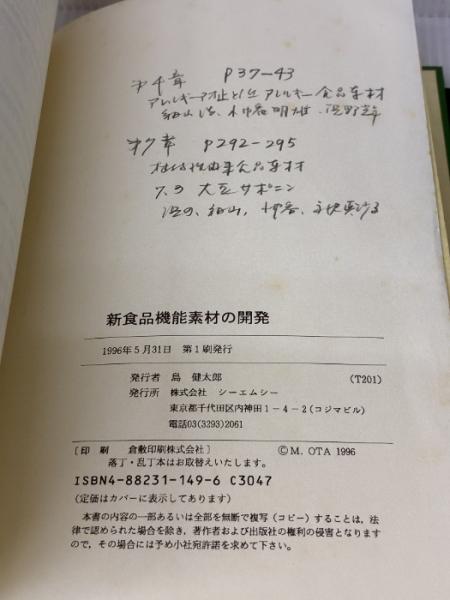 第4章 P37-43
食品素材
第7章 P292-295
食品素材
7.3 大豆サポニン
新食品機能素材の開発
1996年5月31日 第1刷発行
発行者 島 健太郎 (T201)
発行所 株式会社 シーエムシー
東京都千代田区内神田1-4-2(コジマビル)
電話03(3293)2061
〔印 刷 倉敷印刷株式会社〕 ©M. OTA 1996
落丁・乱丁本はお取替えいたします。
ISBN4-88231-149-6 C3047
(定価はカバーに表示してあります)
本書の内容の一部あるいは全部を無断で複写(コピー)することは、法
律で認められた場合を除き、著作者および出版社の権利の侵害となります
ので、その場合には予め小社宛許諾を求めて下さい。